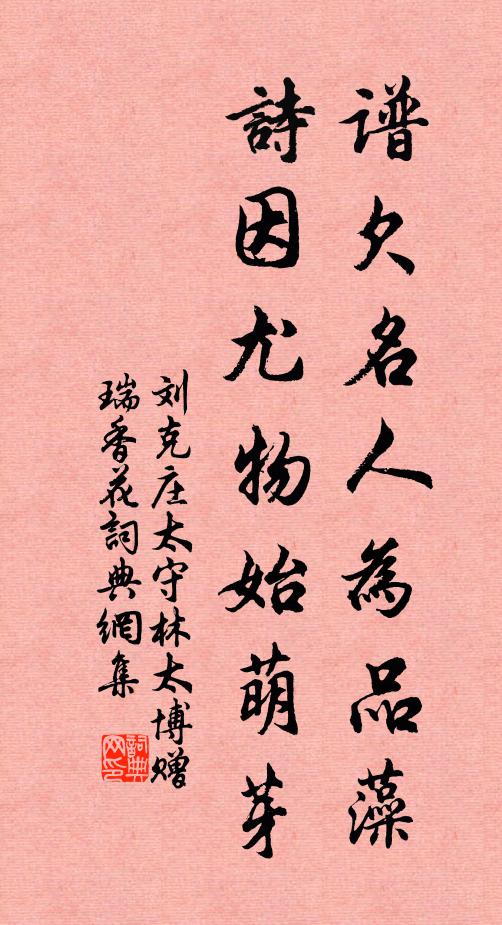 谱欠名人為品藻
詩因尤物始萌芽
刘克庄太守林太博赠
瑞香花詞典網集
詞典网印